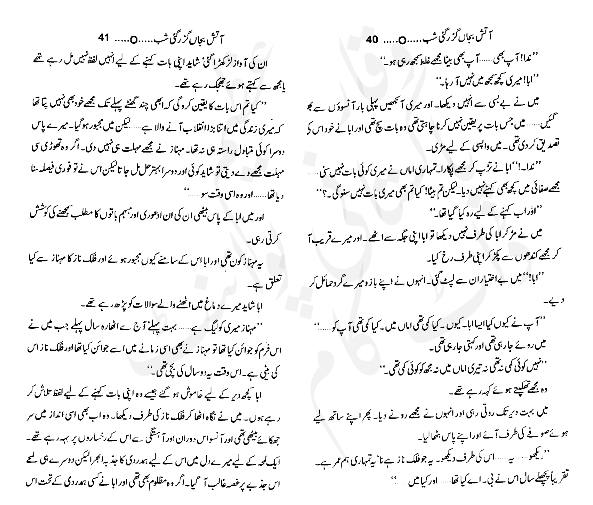 آتش بجاں گزر گئی شب......O...... 40
’’ندا! آپ بھی...... آپ بھی بیٹا مجھے غلط سمجھ رہی ہو۔‘‘
’’ابا! میری کچھ سمجھ میں نہیں آ رہا۔‘‘
میں نے بے بسی سے انہیں دیکھا۔ اور میری آنکھیں پہلی بار آنسوؤں سے بھر
گئیں...... میں جس بات پر یقین نہیں کرنا چاہتی تھی وہ بات سچ تھی اور ابا نے خود اس کی
تصدیق کر دی تھی۔ میں واپسی کے لیے مڑی۔
’’ندا۔!‘‘ ابا نے تڑپ کر مجھے پکارا۔ تمہاری اماں نے میری کوئی بات نہیں سنی......
مجھے صفائی میں کچھ بھی کہنے نہیں دیا۔ لیکن تم بیٹا! کیا تم بھی میری بات نہیں سنو گی۔؟‘‘
’’اور اب کہنے کے لیے رہ کیا گیا تھا۔‘‘
میں نے مڑ کر ابا کی طرف نہیں دیکھا تو ابا اپنی جگہ سے اٹھے۔ اور میرے قریب آ
کر مجھے کندھوں سے پکڑ کر اپنی طرف رخ کیا۔
’’ابا!‘‘ میں بے اختیار ان سے لپٹ گئی۔ انہوں نے اپنے بازو میرے گرد حمائل کر
دیے۔
’’آپ نے کیوں کیا ایسا ابا۔ کیوں۔ کیا کمی تھی اماں میں۔ کیا کمی تھی آپ کو......‘‘
میں روئے جا رہی تھی اور کہتی جا رہی تھی۔
’’نہیں کوئی کمی نہ تھی نہ تیری اماں میں نہ مجھ کو کوئی کمی تھی۔‘‘
وہ مجھے تھپکتے ہوئے کہہ رہے تھے۔
میں بہت دیر تک روتی رہی اور انہوں نے مجھے رونے دیا۔ پھر اپنے ساتھ لیے
ہوئے صوفے کی طرف آئے اور اپنے پاس بٹھا لیا۔
’’دیکھو...... یہ...... اس کی طرف دیکھو۔ یہ جو فلک ناز ہے نا یہ تمہاری ہم عمر ہے۔
تقریباً پچھلے سال اس نے بی۔ اے کیا تھا...... اور کیا میں......‘‘
آتش بجاں گزر گئی شب......O...... 41
ان کی آواز لڑکھڑا گئی شاید اپنی بات کہنے کے لیے انہیں لفظ نہیں مل رہے تھے
یا مجھ سے کہتے ہوئے جھجک رہے تھے۔
’’کیا تم اس بات کا یقین کرو گی کہ ابھی چند گھنٹے پہلے تک مجھے خود بھی نہیں پتا تھا
کہ میری زندگی میں اتنا بڑا انقلاب آنے والا ہے...... لیکن میں مجبور ہو گیا۔ میرے پاس
دوسرا کوئی متبادل راستہ ہی نہ تھا۔ مہناز نے مجھے مہلت ہی نہیں دی۔ اگر وہ تھوڑی سی
مہلت مجھے دے دیتی تو شاید کوئی اور دوسرا بہتر حل مل جاتا لیکن اس نے تو فوری فیصلہ سنا
دیا تھا...... اور وہ اسی وقت سو......‘‘
اور میں ابا کے پاس بیٹھی ان کی ان ادھوری اور مبہم باتوں کا مطلب سمجھنے کی کوشش
کرتی رہی۔
یہ مہناز کون تھی اور ابا اس کے سامنے کیوں مجبور ہوئے اور فلک ناز کا مہناز سے کیا
تعلق ہے۔
ابا شاید میرے دماغ میں اٹھنے والے سوالات کو پڑھ رہے تھے۔
’’مہناز میری کولیگ ہے...... بہت پہلے آج سے اٹھارہ سال پہلے جب میں نے
اس فرم کو جوائن کیا تھا تو مہناز نے بھی اسی زمانے میں اسے جوائن کیا تھا اور فلک ناز اس
کی بیٹی ہے۔ اس وقت یہ دو سال کی بچی تھی۔‘‘
ابا کچھ دیر کے لیے خاموش ہو گئے جیسے وہ اپنی بات کہنے کے لیے لفظ تلاش کر
رہے ہوں۔ میں نے نگاہ اٹھا کر فلک ناز کی طرف دیکھا۔ وہ اب بھی اسی انداز میں سر
جھکائے بیٹھی تھی اور آنسو اس دوران اور آہستگی سے اس کے رخساروں پر بہہ رہے تھے۔
ایک لمحہ کے لیے میرے دل میں اس کے لیے ہمدردی کا جذبہ ابھرا لیکن دوسرے ہی لمحے
اس جذبے پر غصہ غالب آ گیا۔ اگر وہ مظلوم بھی تھی اور ابا نے کسی ہمدردی کے تحت اس